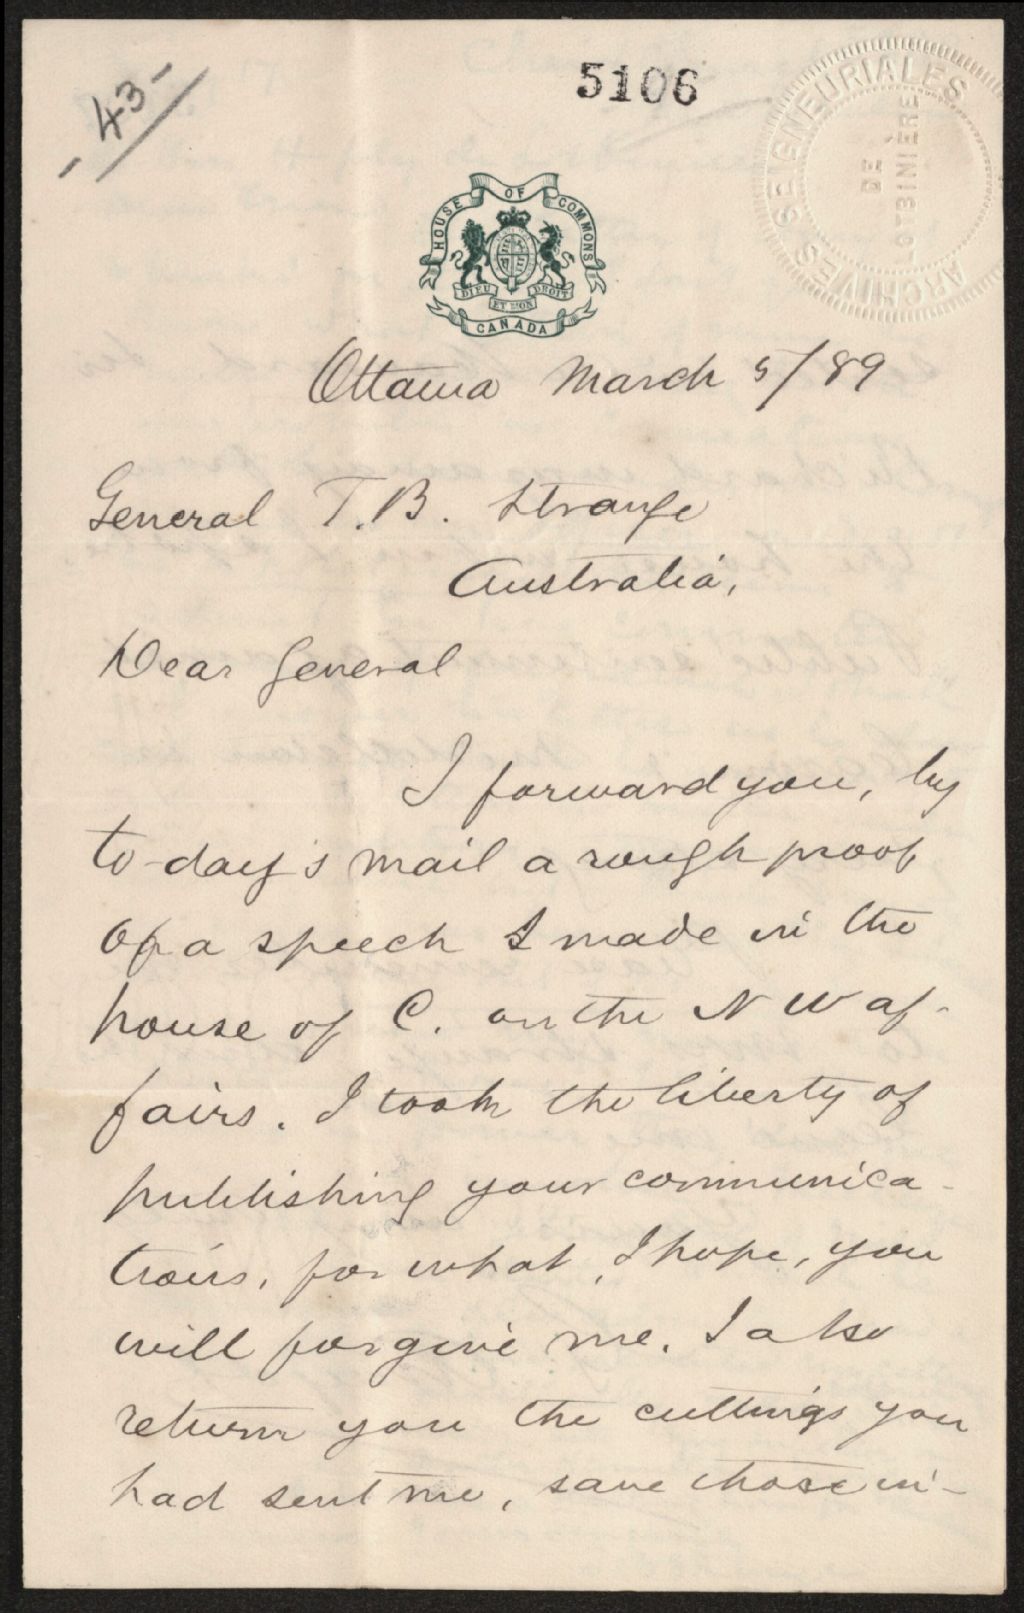 - 43 -
5106
ARCHIVES SEIGNEURIALES
DE
LOTBINIÈRE
HOUSE OF COMMONS
DIEU ET MON DROIT
CANADA
Ottawa March 5/89
General T.B. Strange
Australia,
Dear General
I forward you, by
to-day's mail a rough proof
of a speech I made in the
house of C. on the N W af-
fairs. I took the liberty of
publishing your communica-
tions, for what, I hope, you
will forgive me. I also
return you the cuttings you
had sent me, save those in-